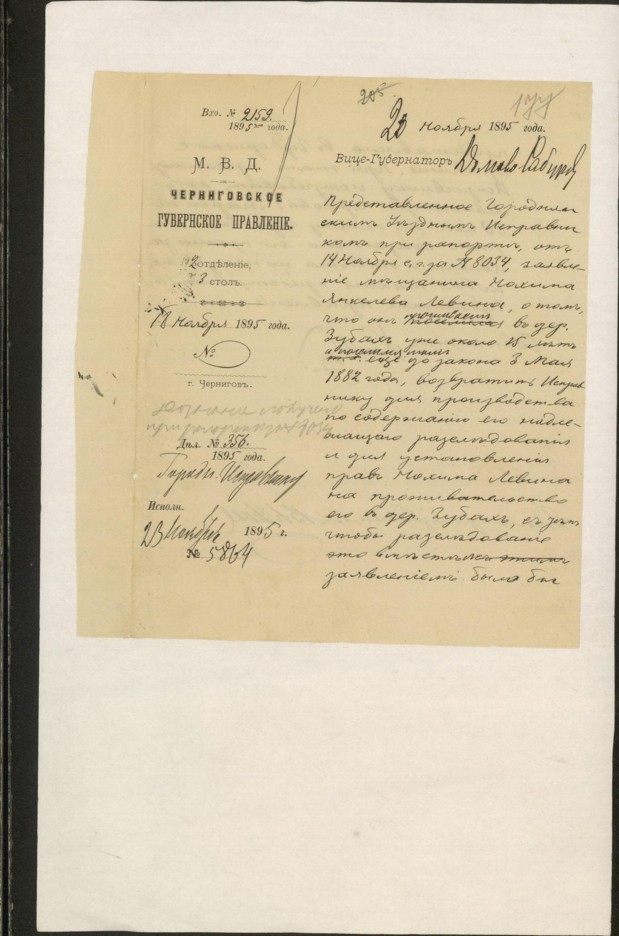 205
177
Вхо. № 2159.
1895 года.
23 Ноября 1895 года.
М. В. Д.
Вице-Губернаторъ
ЧЕРНИГОВСКОЕ
ГУБЕРНСКОЕ ПРАВЛЕНІЕ.
2 отдѣленіе,
3 столъ.
18 Ноября 1895 года.
№
г. Черниговъ.
Дѣл. № 356.
1895 года.
Городн. Исправнику
Исполн.
23 Ноября 1895 г.
№ 5864
Представленное Городнян
скимъ Уѣзднымъ Исправни
комъ при рапортѣ, отъ
14 Ноября с. г. за № 8034, заявле-
ніе мѣщанина Нохима
Янкелева Левина, о томъ,
что онъ проживаетъ въ дер.
Зубахъ уже около 15 лѣтъ
и поселился тамъ
еще до закона 3 Мая
1882 года, возвратить Исправ
нику для производства
по содержанію его надле-
жащаго разслѣдованія
и для установленія
правъ Нохима Левина
на проживательство
его въ дер. Зубахъ, съ тѣмъ
чтобы разслѣдованіе
это вмѣстѣ съ
заявленіемъ было бы